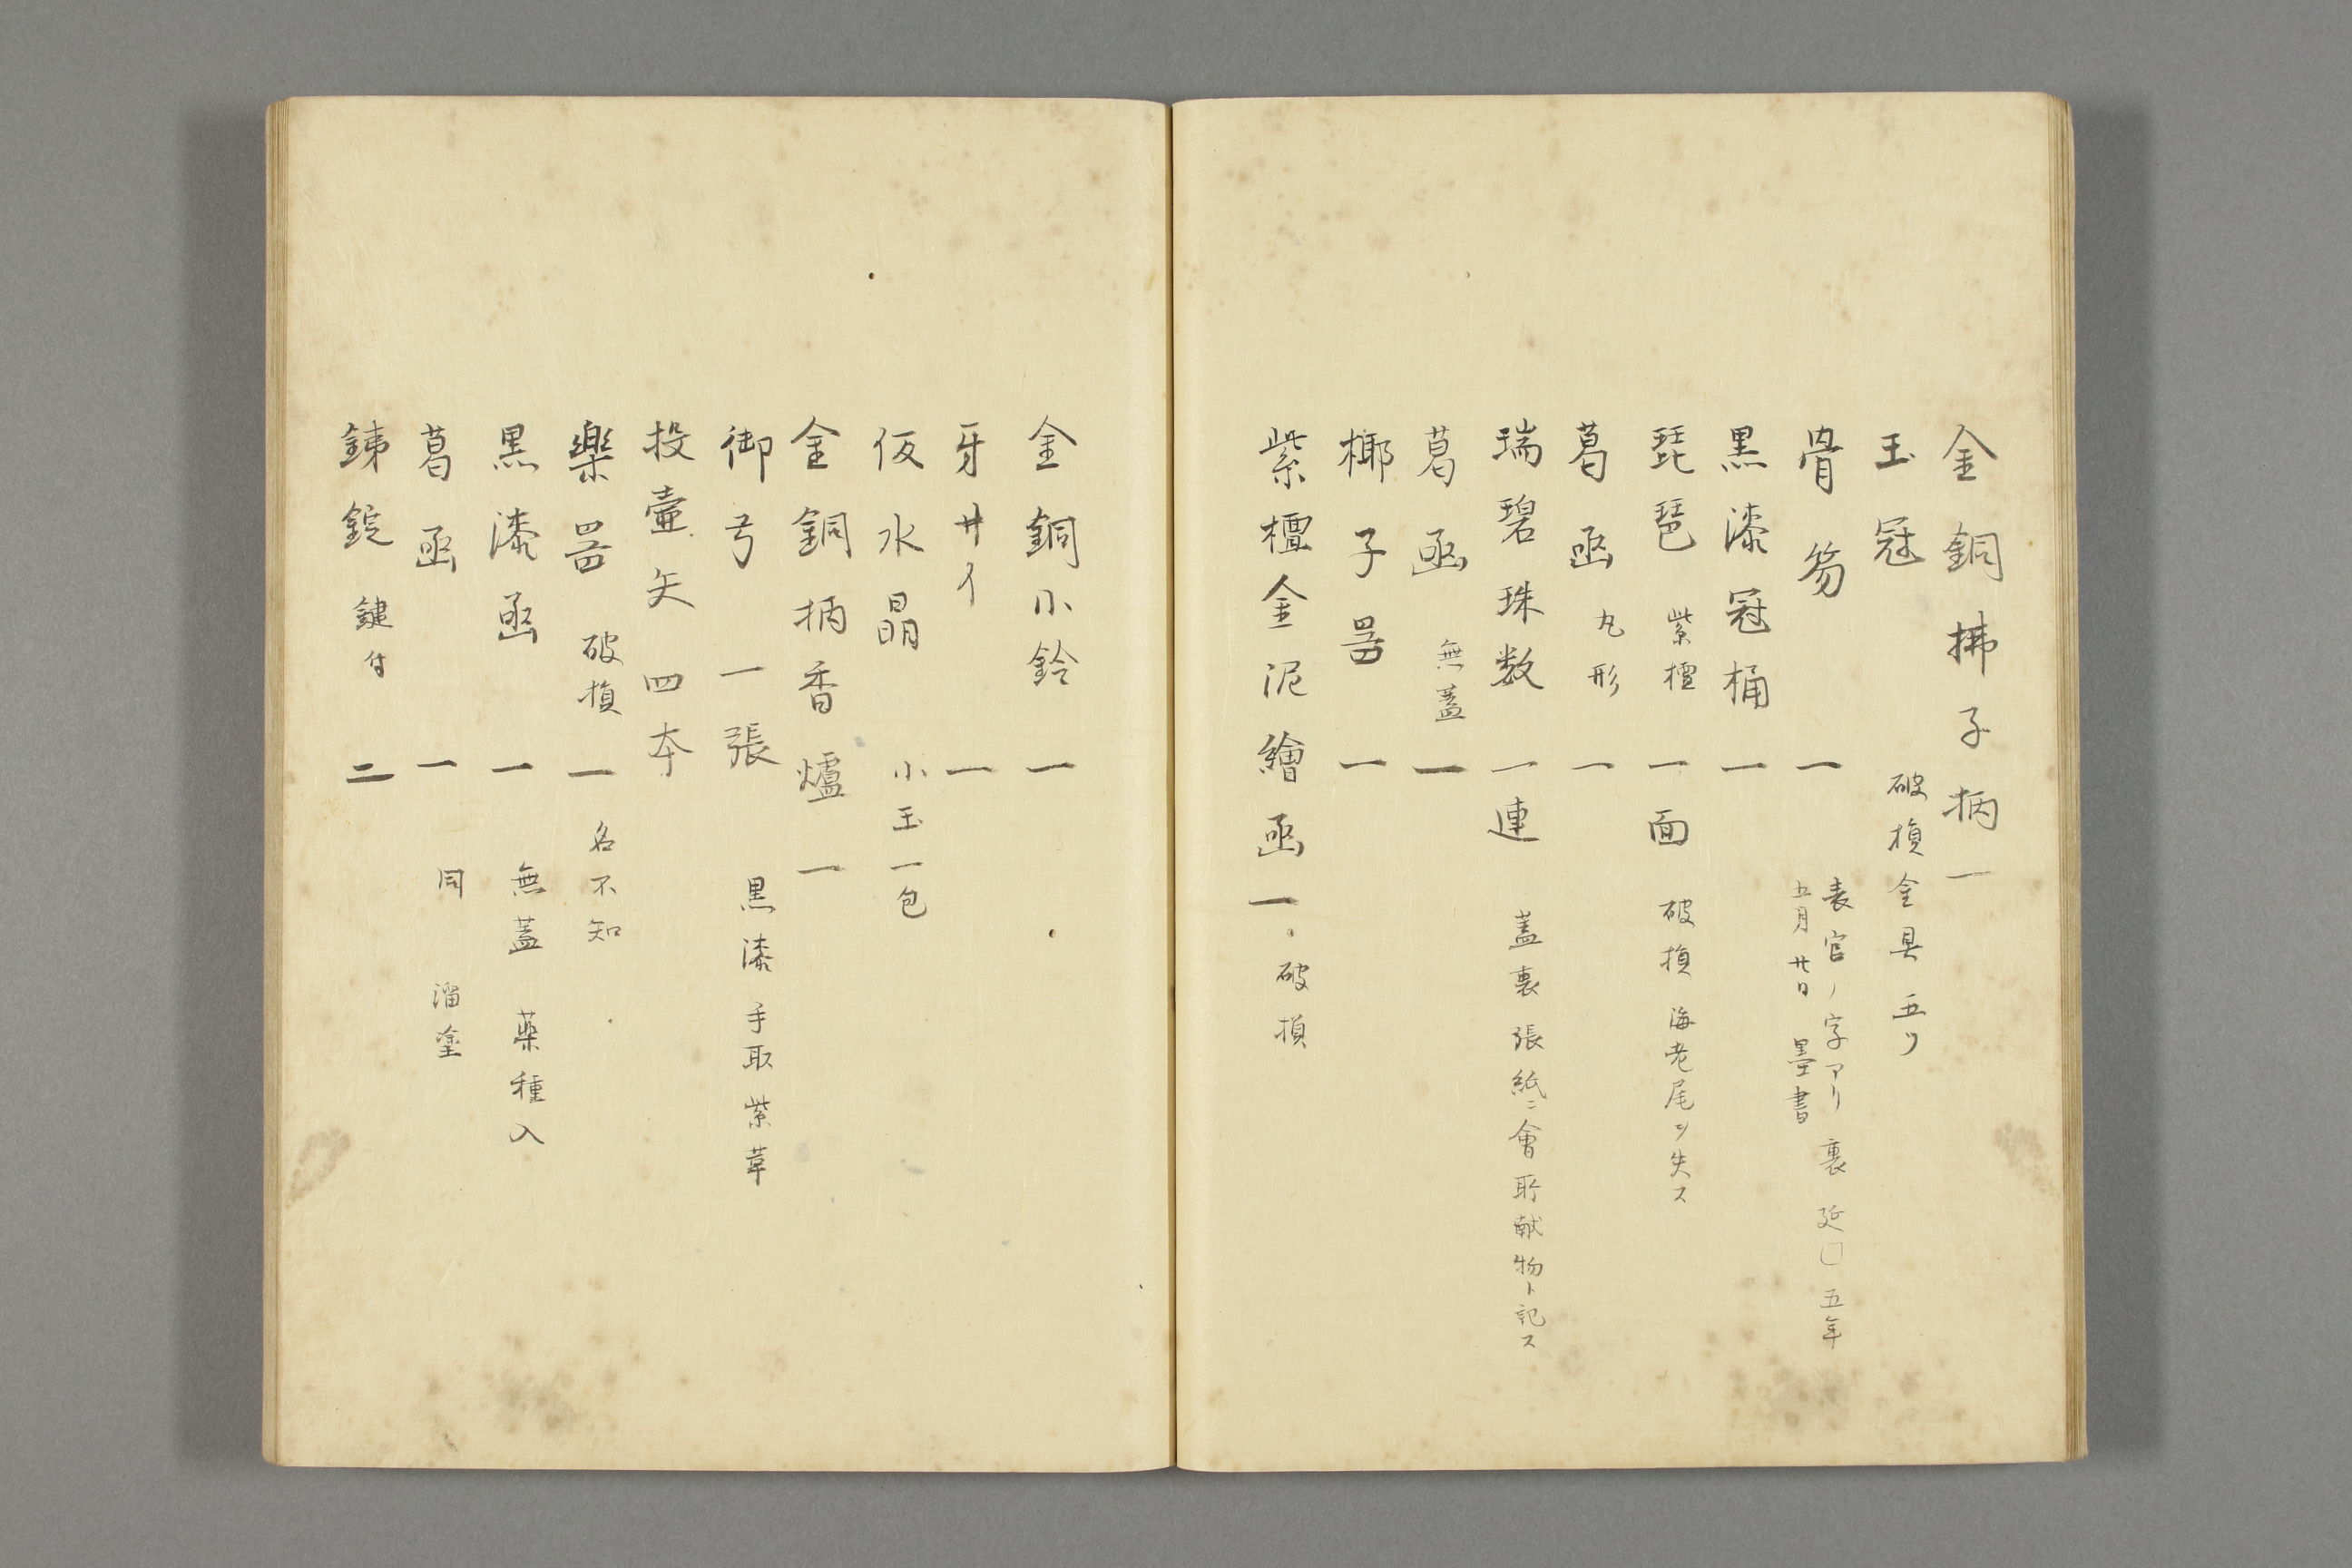 金銅拂子柄一
玉冠 破損金具五ツ
骨笏 一 表官ノ字アリ裏延□五年
五月廿日墨書
黒漆冠桶 一
琵琶 紫檀 一面 破損海老尾ヲ失ス
葛函 丸形 一
瑞碧珠数 一連 蓋裏張紙ニ會所献物ト記ス
葛函 無蓋 一
椰子器 一
紫檀金泥繪函 一 破損
金銅小鈴 一
牙井イ 一
仮水晶 小玉一包
金銅柄香爐 一
御弓 一張 黒漆手取紫革
投壷矢四本
楽器 破損 一 名不知
黒漆函 一 無蓋 薬種入
葛函 一 同 溜塗
銕錠 鍵付 二